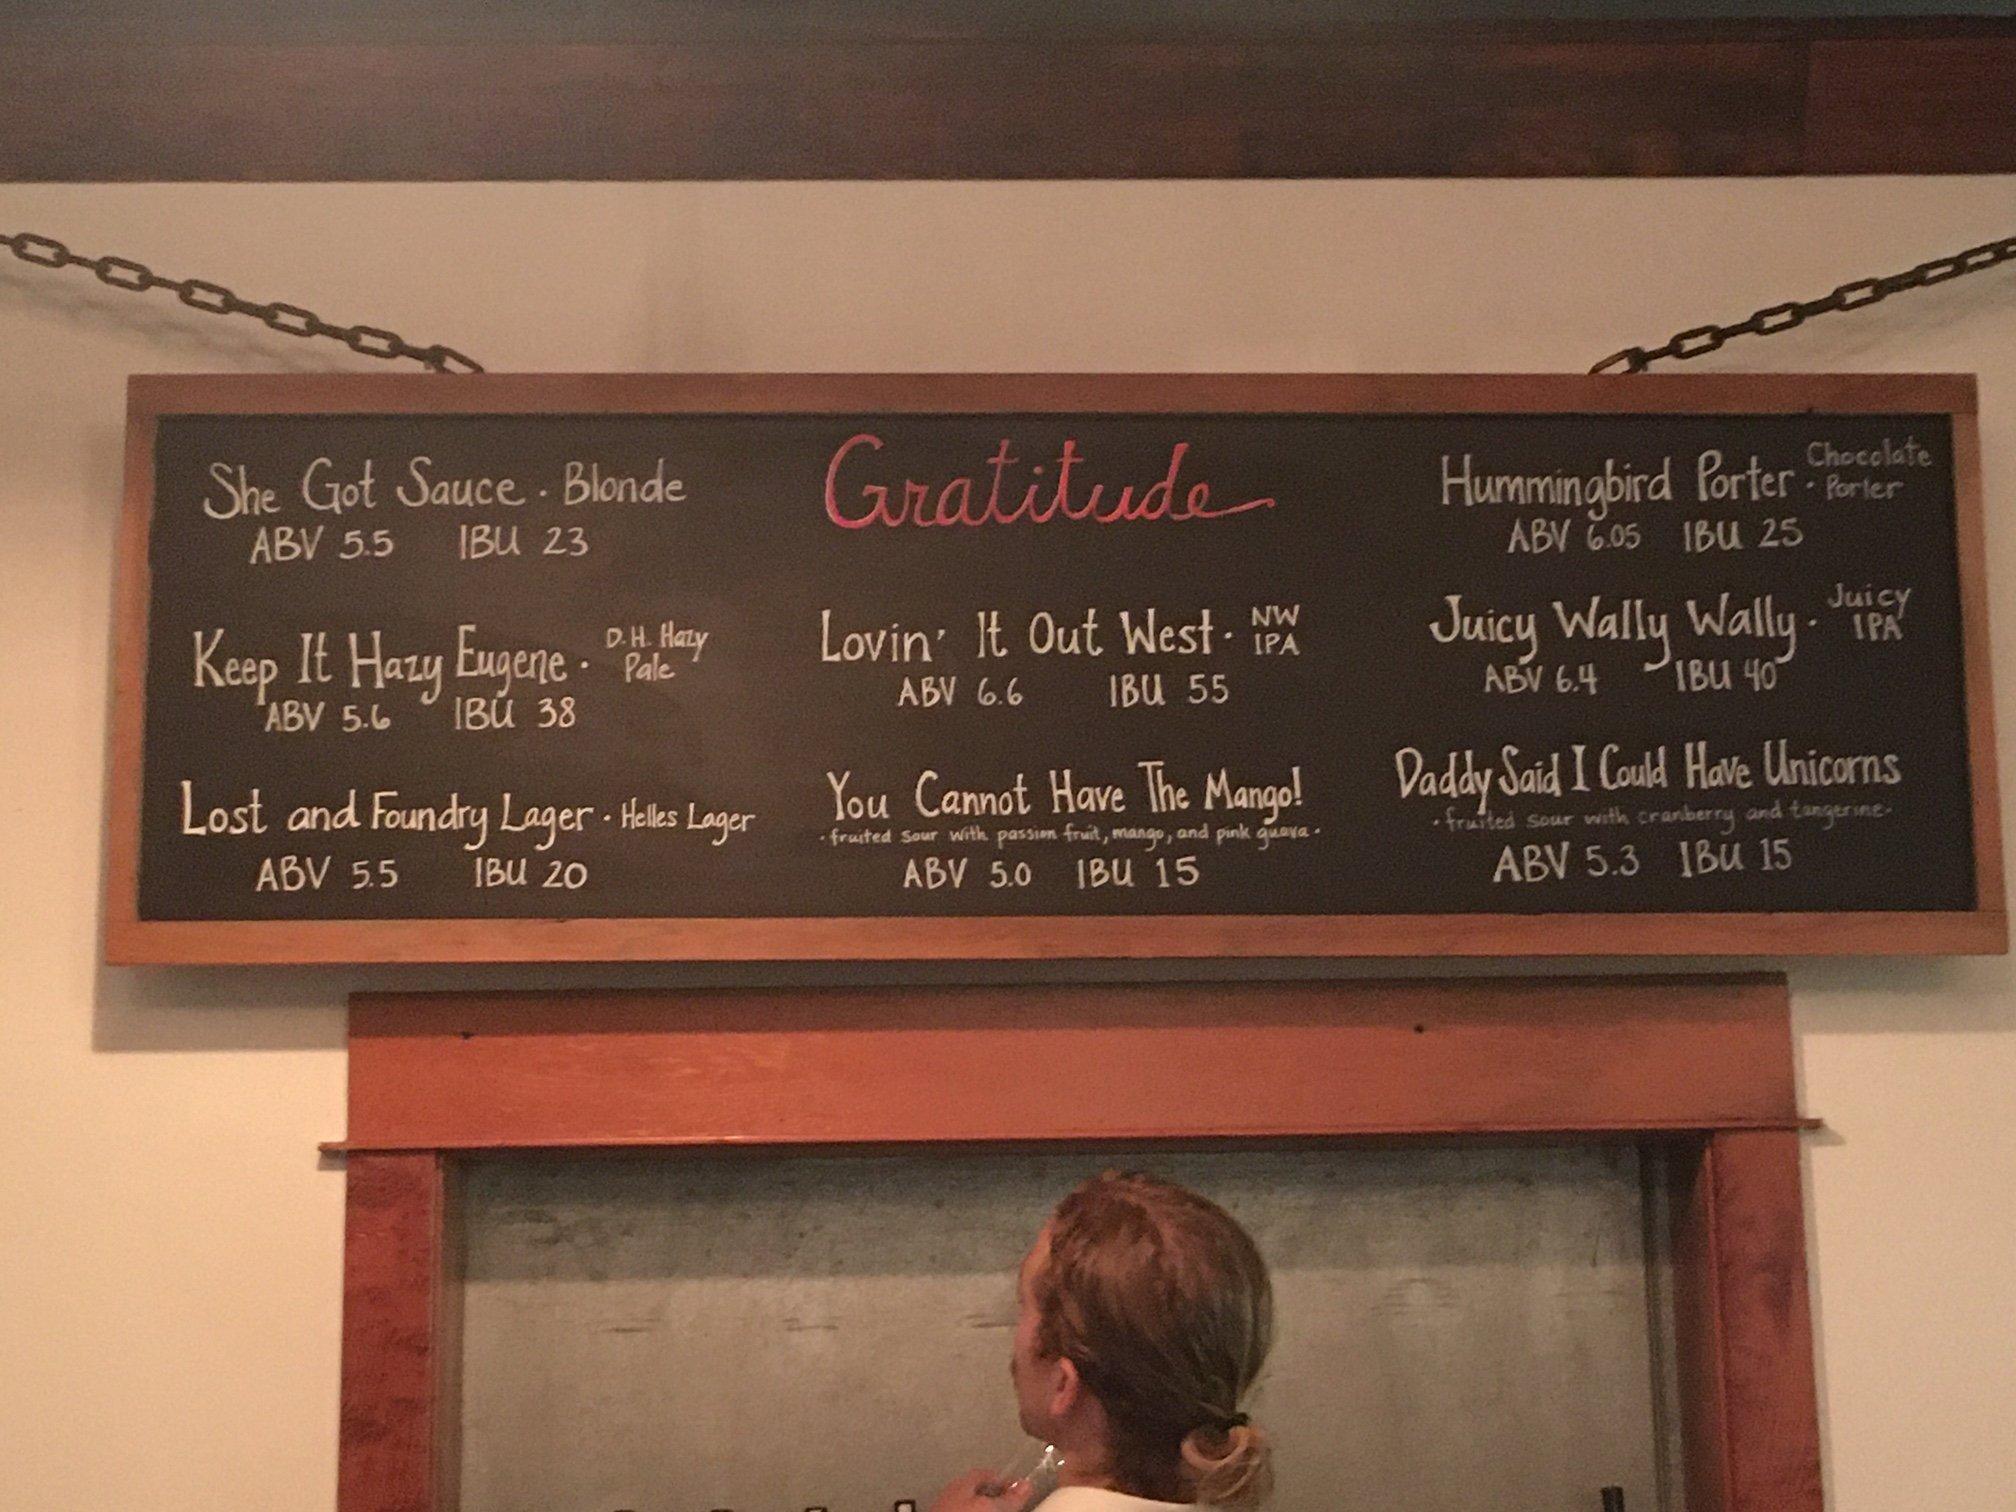 She Got Sauce · Blonde
ABV 5.5 IBU 23
Keep It Hazy Eugene · D.H. Hazy
Pale
ABV 5.6 IBU 38
Lost and Foundry Lager · Helles Lager
ABV 5.5 IBU 20
Gratitude
Lovin' It Out West · NW
IPA
ABV 6.6 IBU 55
You Cannot Have The Mango!
· fruited sour with passion fruit, mango, and pink guava ·
ABV 5.0 IBU 15
Hummingbird Porter · Chocolate
Porter
ABV 6.05 IBU 25
Juicy Wally Wally · Juicy
IPA
ABV 6.4 IBU 40
Daddy Said I Could Have Unicorns
· fruited sour with cranberry and tangerine ·
ABV 5.3 IBU 15